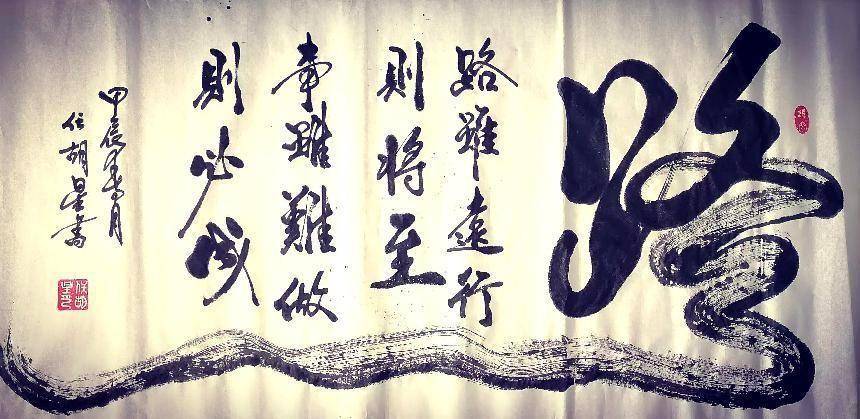 路
路雖遠行
則将至
事雖難做
則必成
甲辰年春月
任胡星書